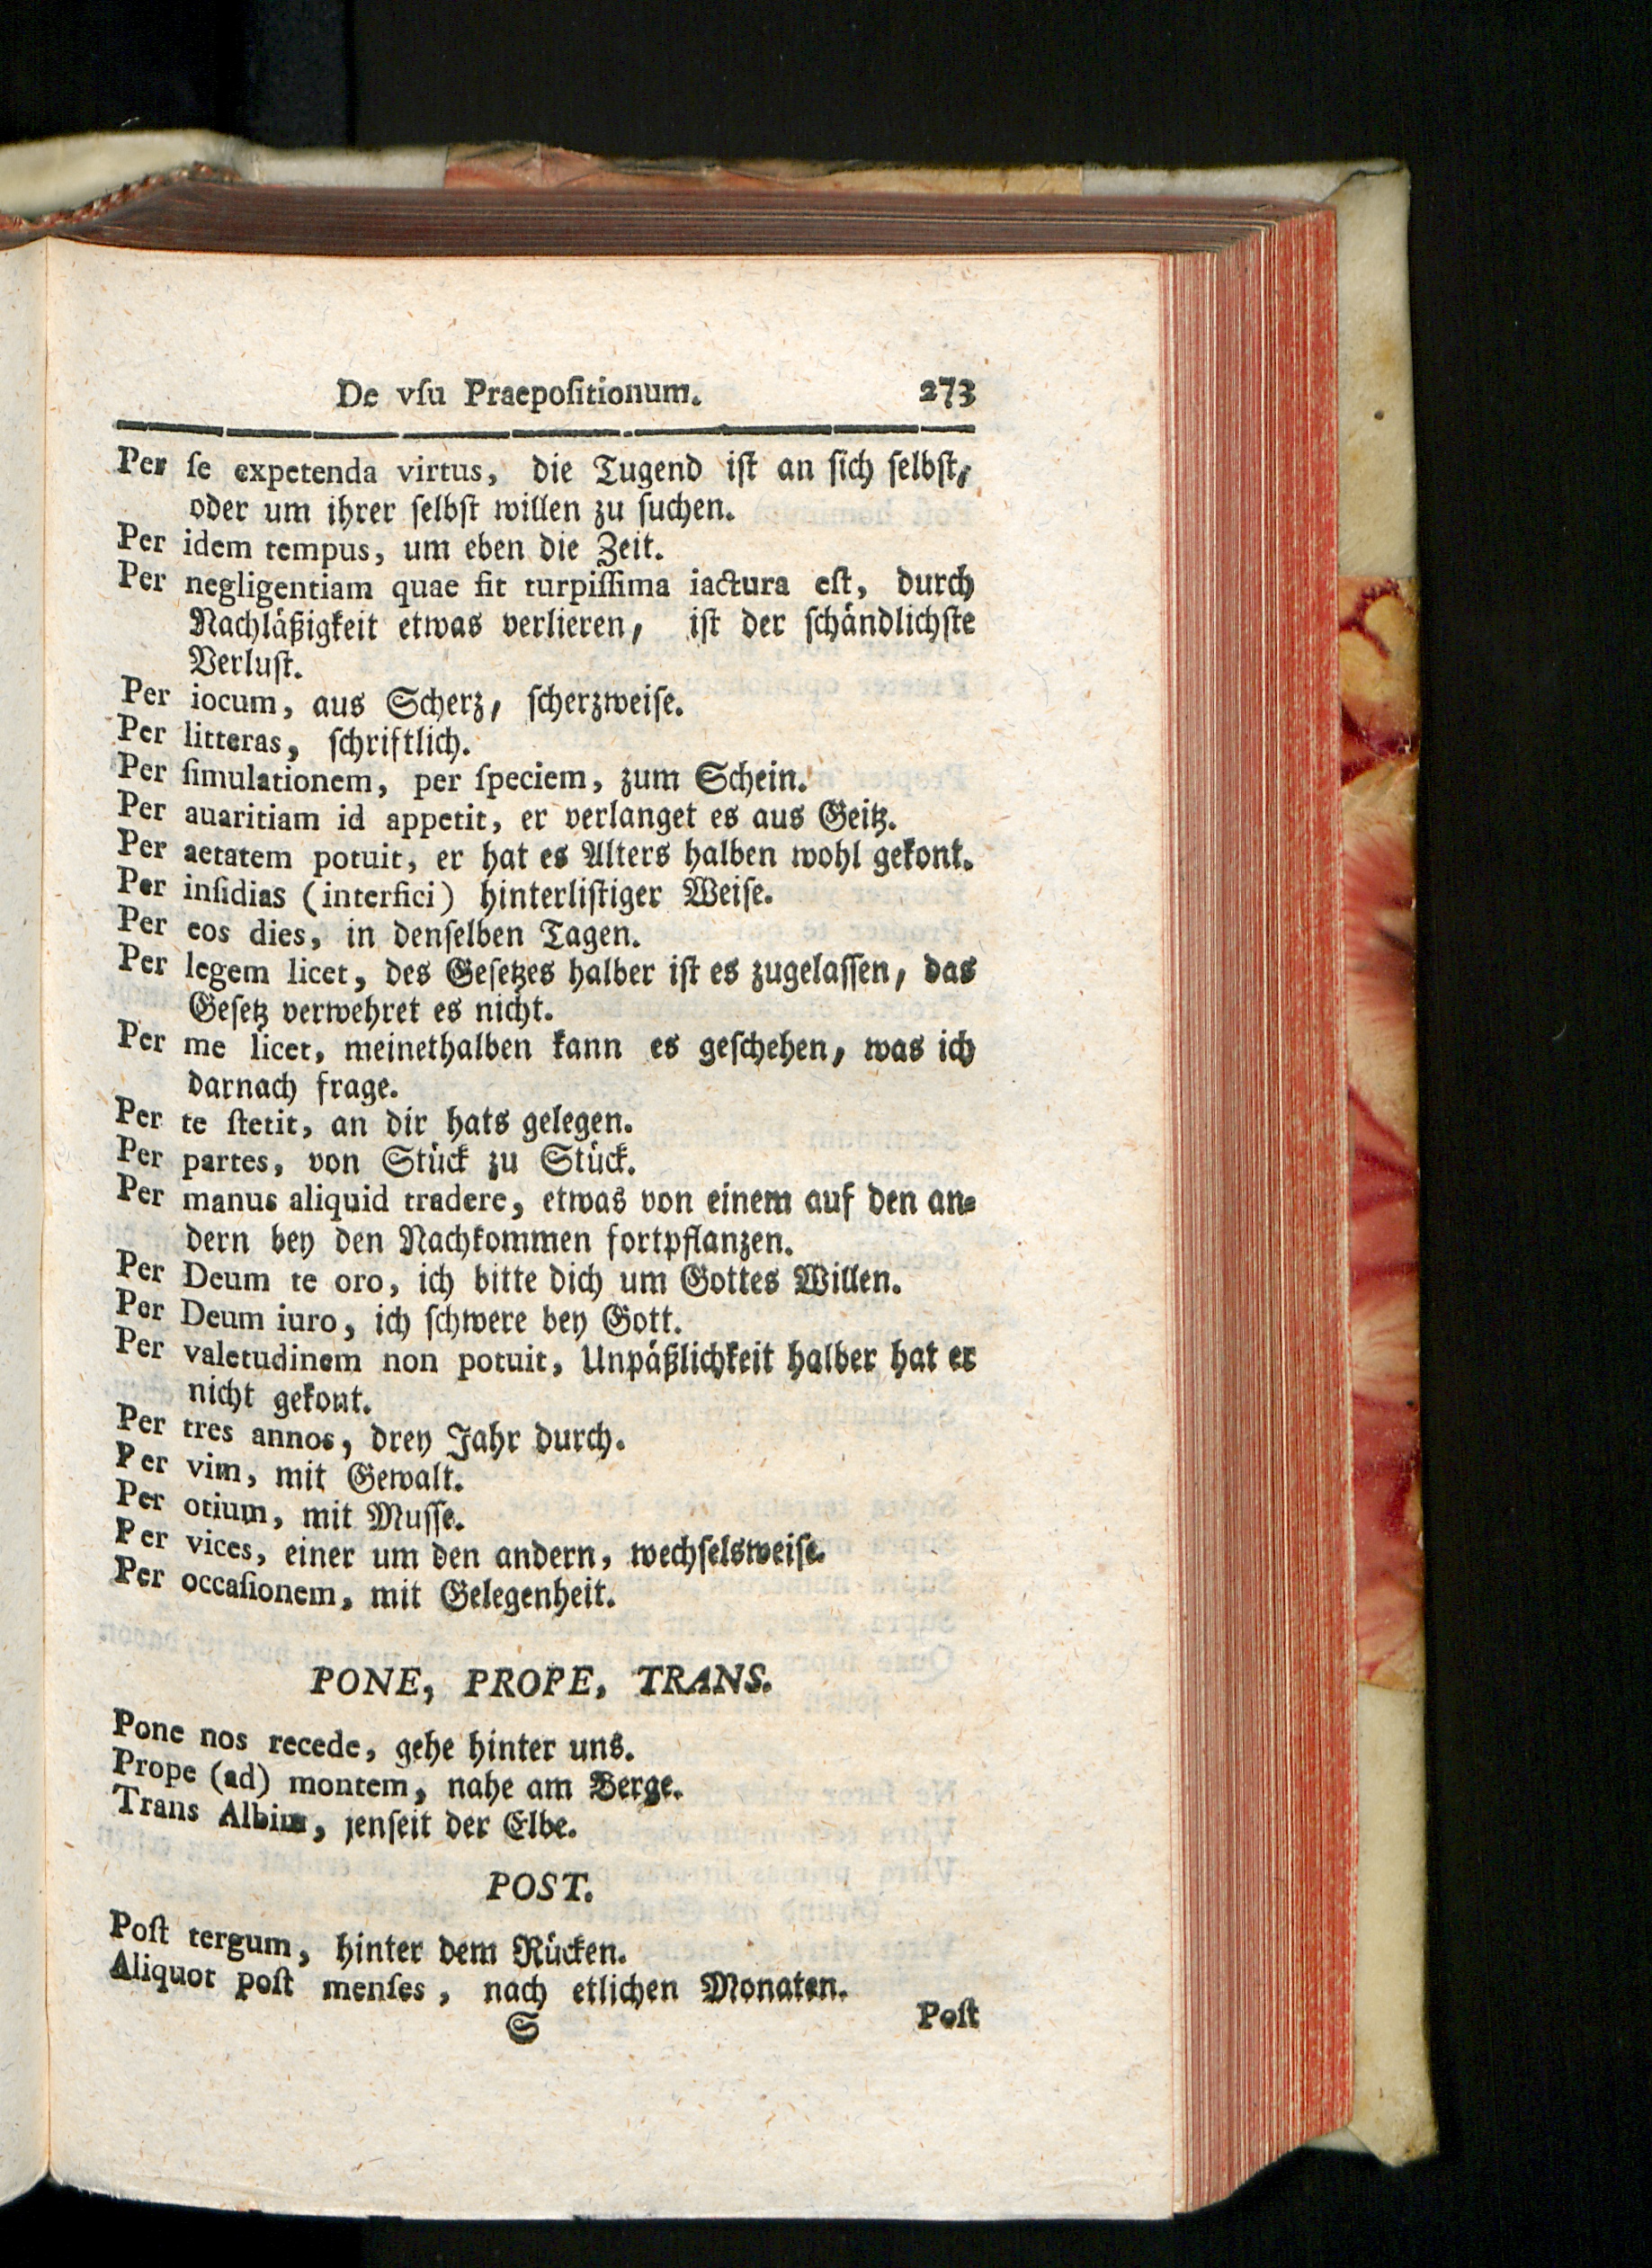 De vſu Praepoſitionum. 273
Per ſe expetenda virtus, die Tugend iſt an ſich ſelbſt,
oder um ihrer ſelbſt willen zu ſuchen.
Per idem tempus, um eben die Zeit.
Per negligentiam quae fit turpiſſima iactura eſt, durch
Nachläßigkeit etwas verlieren, iſt der ſchändlichſte
Verluſt.
Per iocum, aus Scherz, ſcherzweiſe.
Per litteras, ſchriftlich.
Per ſimulationem, per ſpeciem, zum Schein.
Per auaritiam id appetit, er verlanget es aus Geitz.
Per aetatem potuit, er hat es Alters halben wohl gekont.
Per inſidias (interfici) hinterliſtiger Weiſe.
Per eos dies, in denſelben Tagen.
Per legem licet, des Geſetzes halber iſt es zugelaſſen, das
Geſetz verwehret es nicht.
Per me licet, meinethalben kann es geſchehen, was ich
darnach frage.
Per te ſtetit, an dir hats gelegen.
Per partes, von Stück zu Stück.
Per manus aliquid tradere, etwas von einem auf den an⸗
dern bey den Nachkommen fortpflanzen.
Per Deum te oro, ich bitte dich um Gottes Willen.
Per Deum iuro, ich ſchwere bey Gott.
Per valetudinem non potuit, Unpäßlichkeit halber hat er
nicht gekont.
Per tres annos, drey Jahr durch.
Per vim, mit Gewalt.
Per otium, mit Muſſe.
Per vices, einer um den andern, wechſelsweiſe.
Per occaſionem, mit Gelegenheit.
PONE, PROPE, TRANS.
Pone nos recede, gehe hinter uns.
Prope (ad) montem, nahe am Berge.
Trans Albim, jenſeit der Elbe.
POST.
Poſt tergum, hinter dem Rücken.
Aliquot poſt menſes, nach etlichen Monaten.
S Poſt